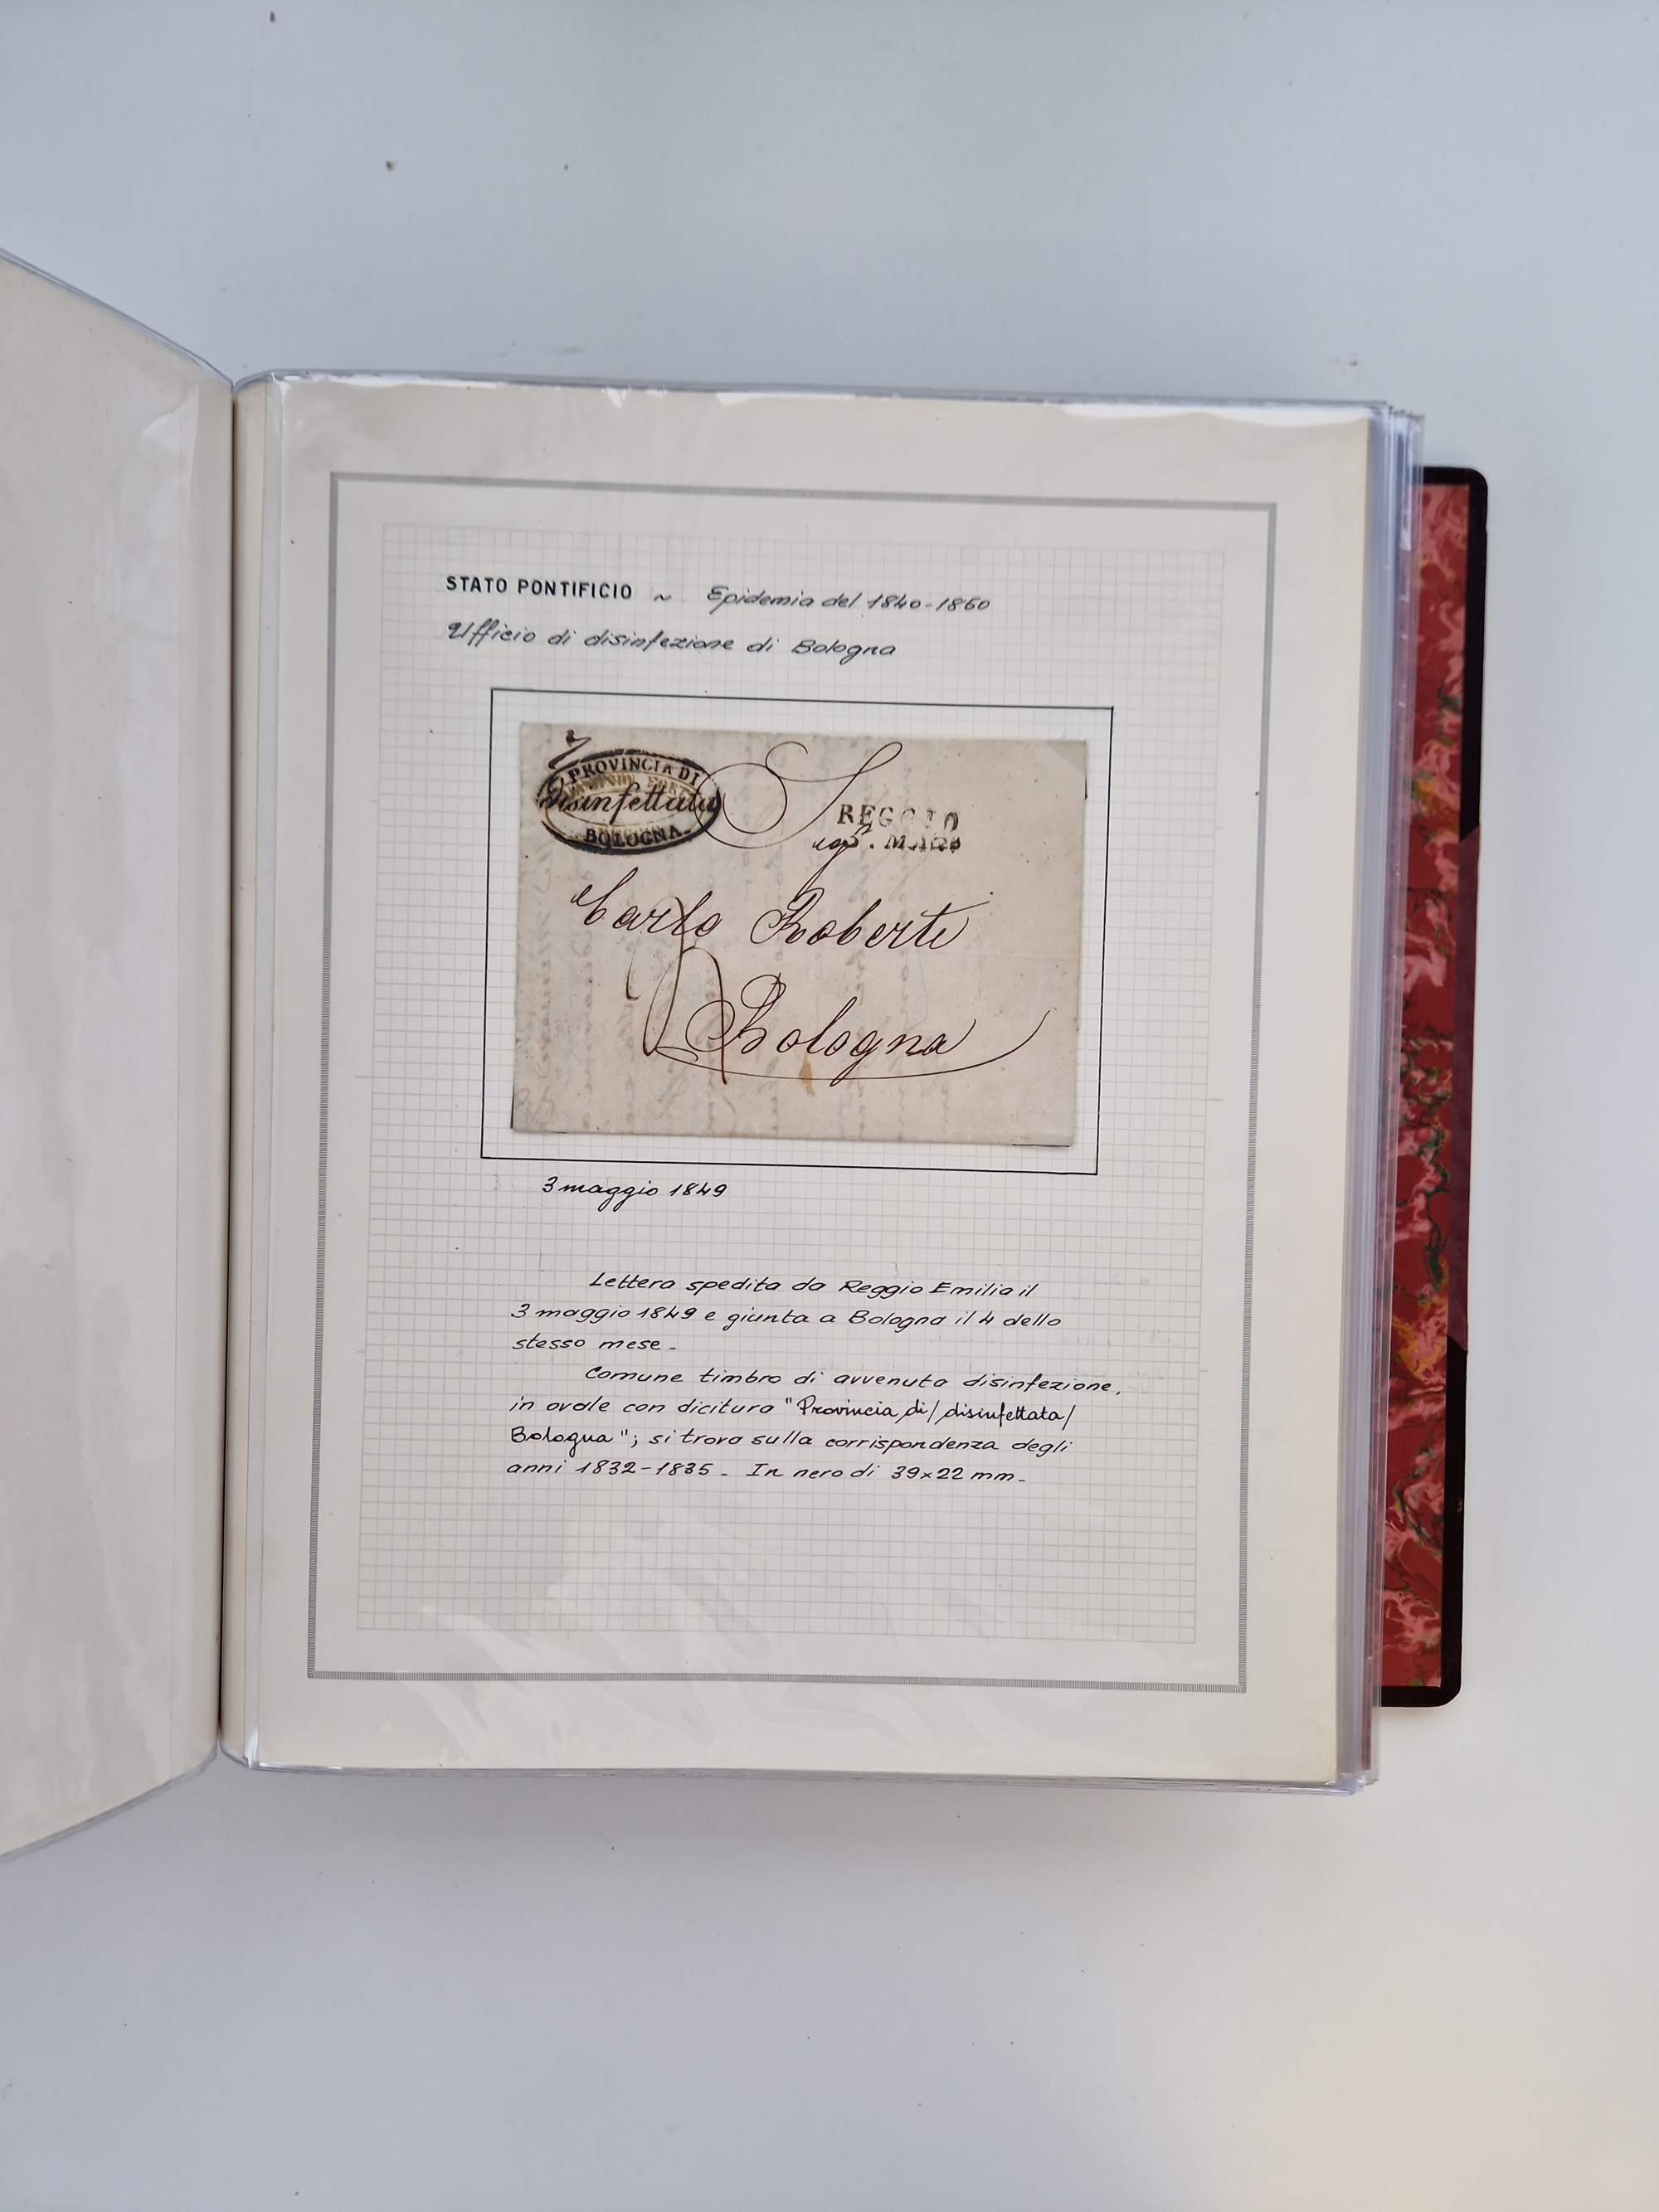 STATO PONTIFICIO ~ Epidemia del 1840-1860
Ufficio di disinfezione di Bologna
PROVINCIA DI
disinfettata
BOLOGNA
REGGIO
Carlo Roberti
Bologna
3 maggio 1849
Lettera spedita da Reggio Emilia il
3 maggio 1849 e giunta a Bologna il 4 dello
stesso mese -
Comune timbro di avvenuta disinfezione,
in ovale con dicitura "Provincia di/disinfettata/
Bologna"; si trova sulla corrispondenza degli
anni 1832-1835 - In nero di 39x22 mm -